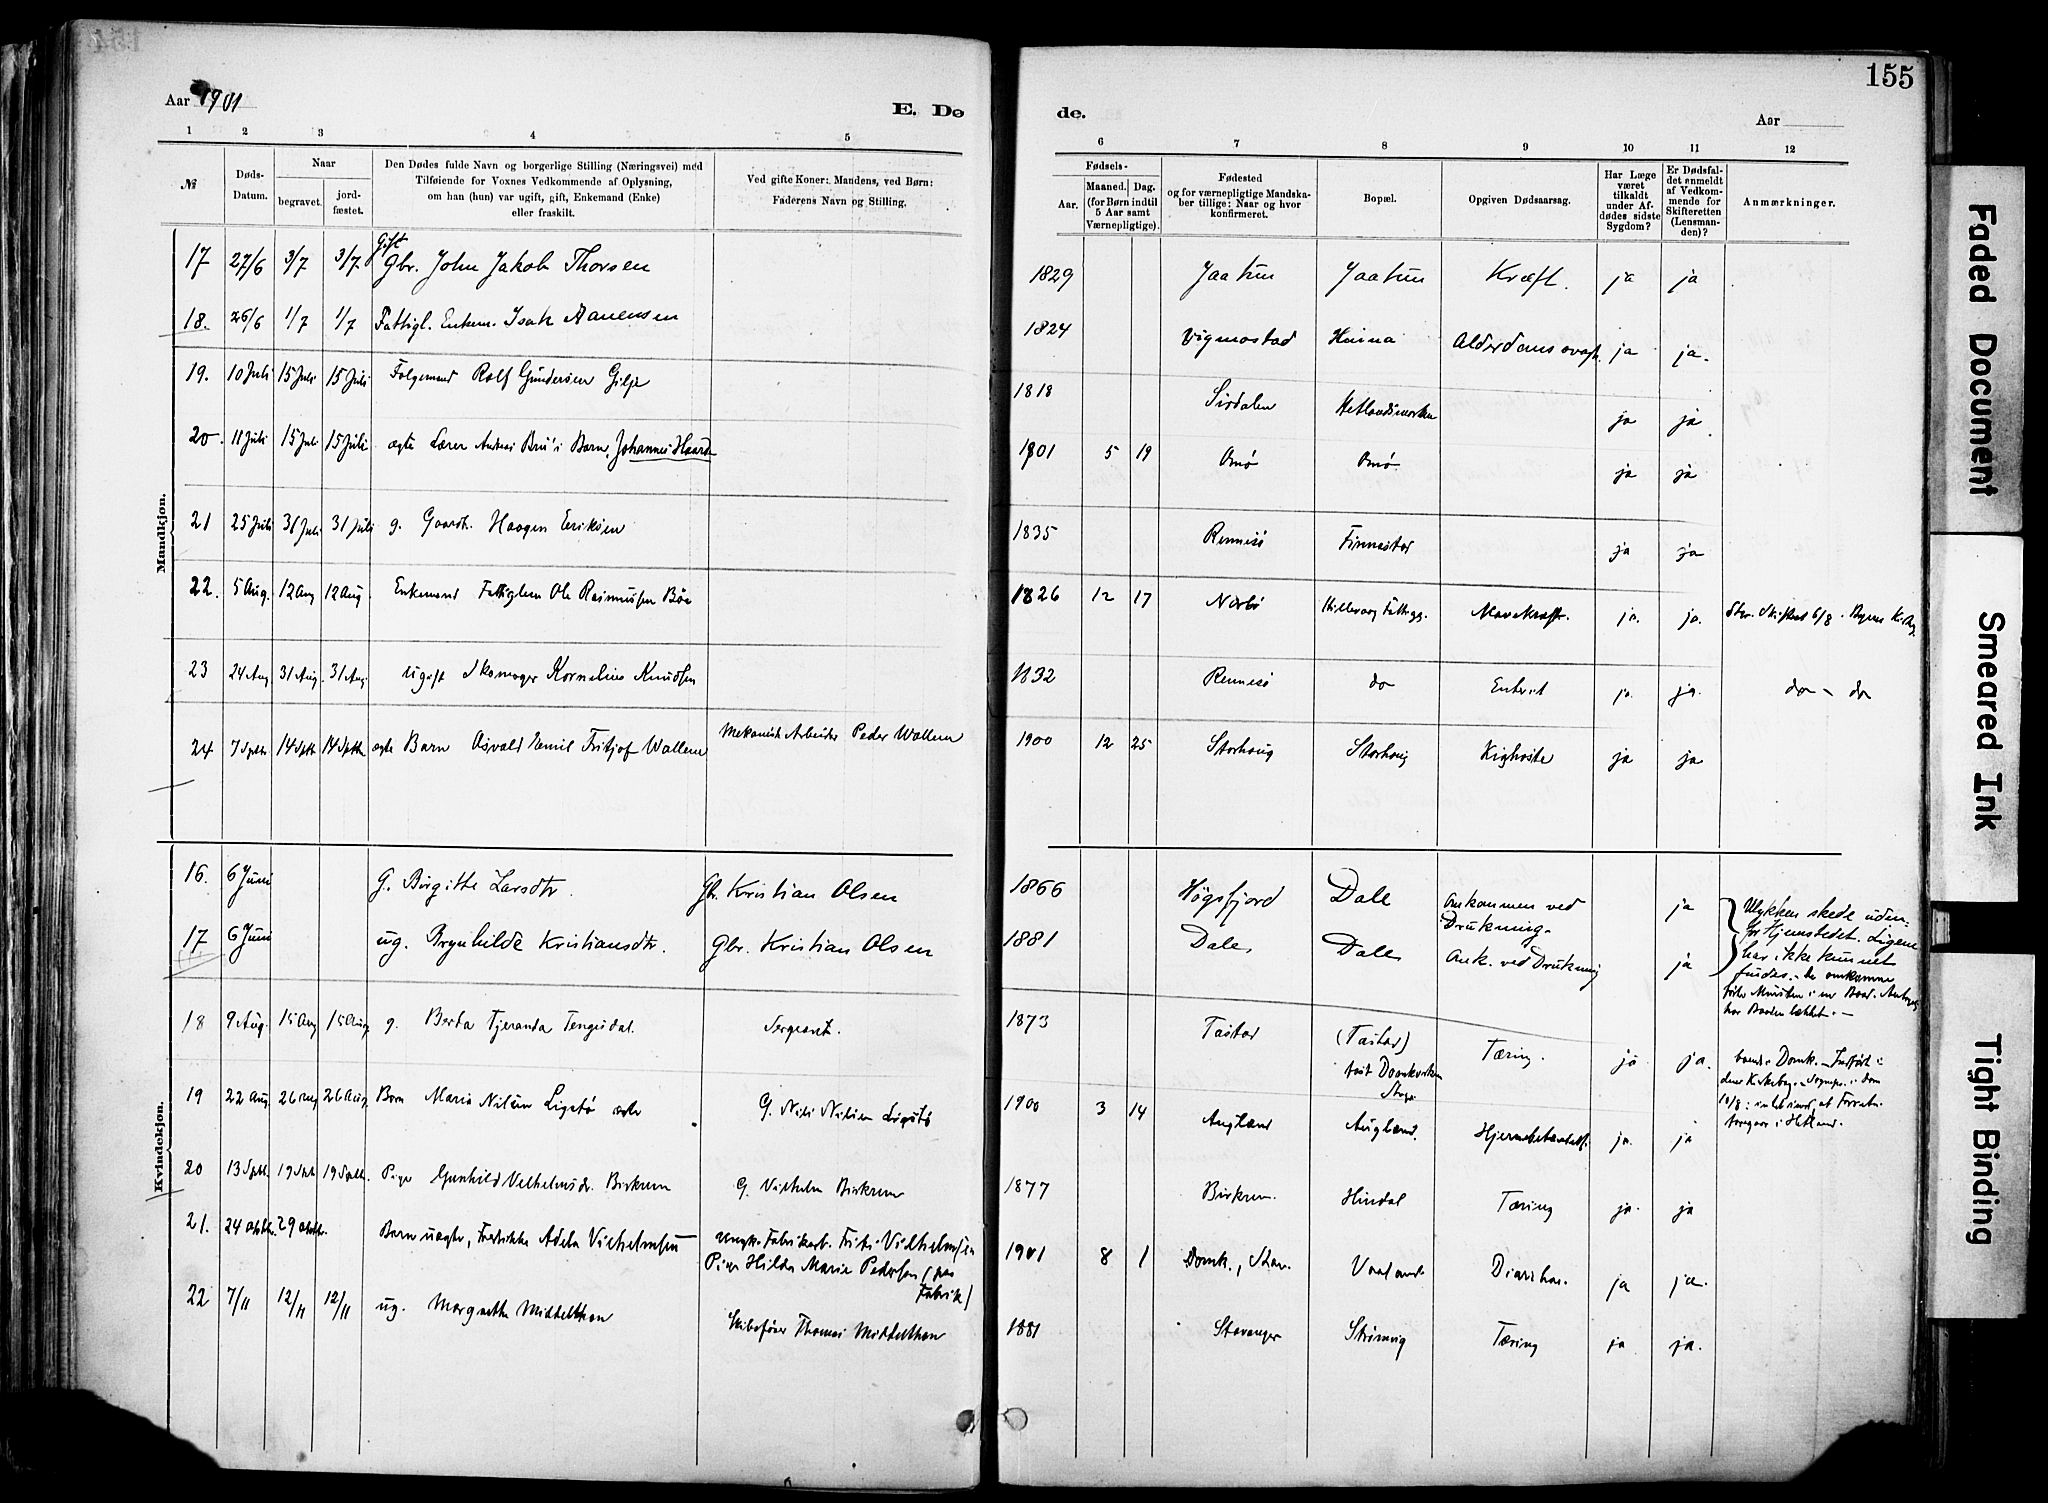 155
Aar 1901
E. Dø
de.
Aar
1 2 3 4 5
6 7 8 9 10 11 12
№
Døds-Datum.
Naar
begravet.
jord-fæstet.
Den Dødes fulde Navn og borgerlige Stilling (Næringsvei) med
Tilføiende for Voxnes Vedkommende af Oplysning,
om han (hun) var ugift, gift, Enkemand (Enke)
eller fraskilt.
Ved gifte Koner: Mandens, ved Børn:
Faderens Navn og Stilling.
Fødsels-
Aar.
Maaned. Dag.
(for Børn indtil
5 Aar samt
Værnepligtige).
Fødested
og for værnepligtige Mandska-
ber tillige: Naar og hvor
konfirmeret.
Bopæl.
Opgiven Dødsaarsag.
Har Læge
været
tilkaldt
under Af-
dødes sidste
Sygdom?
Er Dødsfal-
det anmeldt
af Vedkom-
mende for
Skifteretten
(Lensman-
den)?
Anmærkninger.
Mandkjøn.
Gift
17 27/6 3/7 3/7 Gbr. John Jakob Thorsen 1829 Jaatun Jaatun Kræft. ja ja
18. 26/6 1/7 1/7 Fattigl. Enkem. Isak Aanensen 1824 Vigmostad ja ja.
19. 10 Juli 15 Juli 15 Juli Rolf Gundersen Gilje 1818 Sirdalen Hetlandsmarken ja ja
20. 11 Juli 15 Juli 15 Juli ægte Lærer Andreas Bru's Barn, Johannes 1901 5 19 Omø Omø ja ja
21 25 Juli 31 Juli 31 Juli g. Gaardb. Haagen Eriksen 1835 Rennesø Finnestad ja ja
22. 5 Aug. 12 Aug 12 Aug Enkemand Fattiglem Ole Rasmussen Bøe 1826 12 17 Nærbø Mavekræft. ja. ja.
23 24 Aug 31 Aug. 31 Aug. ugift Skomager Kornelius Knudsen 1832 Rennesø do ja. ja. do - do
24 7 Septb. 14 Septb. 14 Septb. ægte Barn Osvald Emil Fritjof Wallem Mekanisk Arbeider Peder Wallem 1900 12 25 Storhaug Storhaug Kighoste ja ja
Kvindekjøn.
16. 6 Juni G. Birgitte Larsdtr. Gbr. Kristian Olsen 1866 Høgsfjord Dale Omkommen ved Drukning. ja
17 6 Juni ug. Brynhilde Kristiansdtr. Gbr. Kristian Olsen 1881 Dale Dale Omk. ved Drukning ja
Ulykken skede uden-
for Hjemstedet. Ligene
har ikke kunnet
findes. - De omkomne
har Baaden lækket. -
18 9 Aug. 15 Aug 15 Aug g. Berta Tjeranda Tengesdal. Sergeant. 1873 Tastad (Tastad) Tæring. ja ja.
19 22 Aug. 26 Aug 26 Aug. Barn Maria Nilsen Ligstø ægte G. Nils Nilsen Ligstø 1900 3 14 Augland Augland. ja. ja
20 13 Septb. 19 Septb. 19 Septb. Pige Gunhild Vilhelmsdr. Birkrem G. Vilhelm Birkrem 1877 Birkrem. Hindal Tæring ja. ja
21. 24 oktbr. 29 oktbr. Barn uægte, Fredrikke Adela Vilhelmsen Ungk. Fabrikarb. Frits Vilhelmsen
Pige Hilda Marie Pedersen (paa Fabrik) 1901 8 1 Domk., Stav. Vaaland Diarrhoe. ja ja.
22 7/11 12/11 12/11 ug. Margrethe Middelthon Skibsfører Thomas Middelthon 1881 Stavanger Strømvig Tæring ja ja.
Faded Document
Smeared Ink
Tight Binding